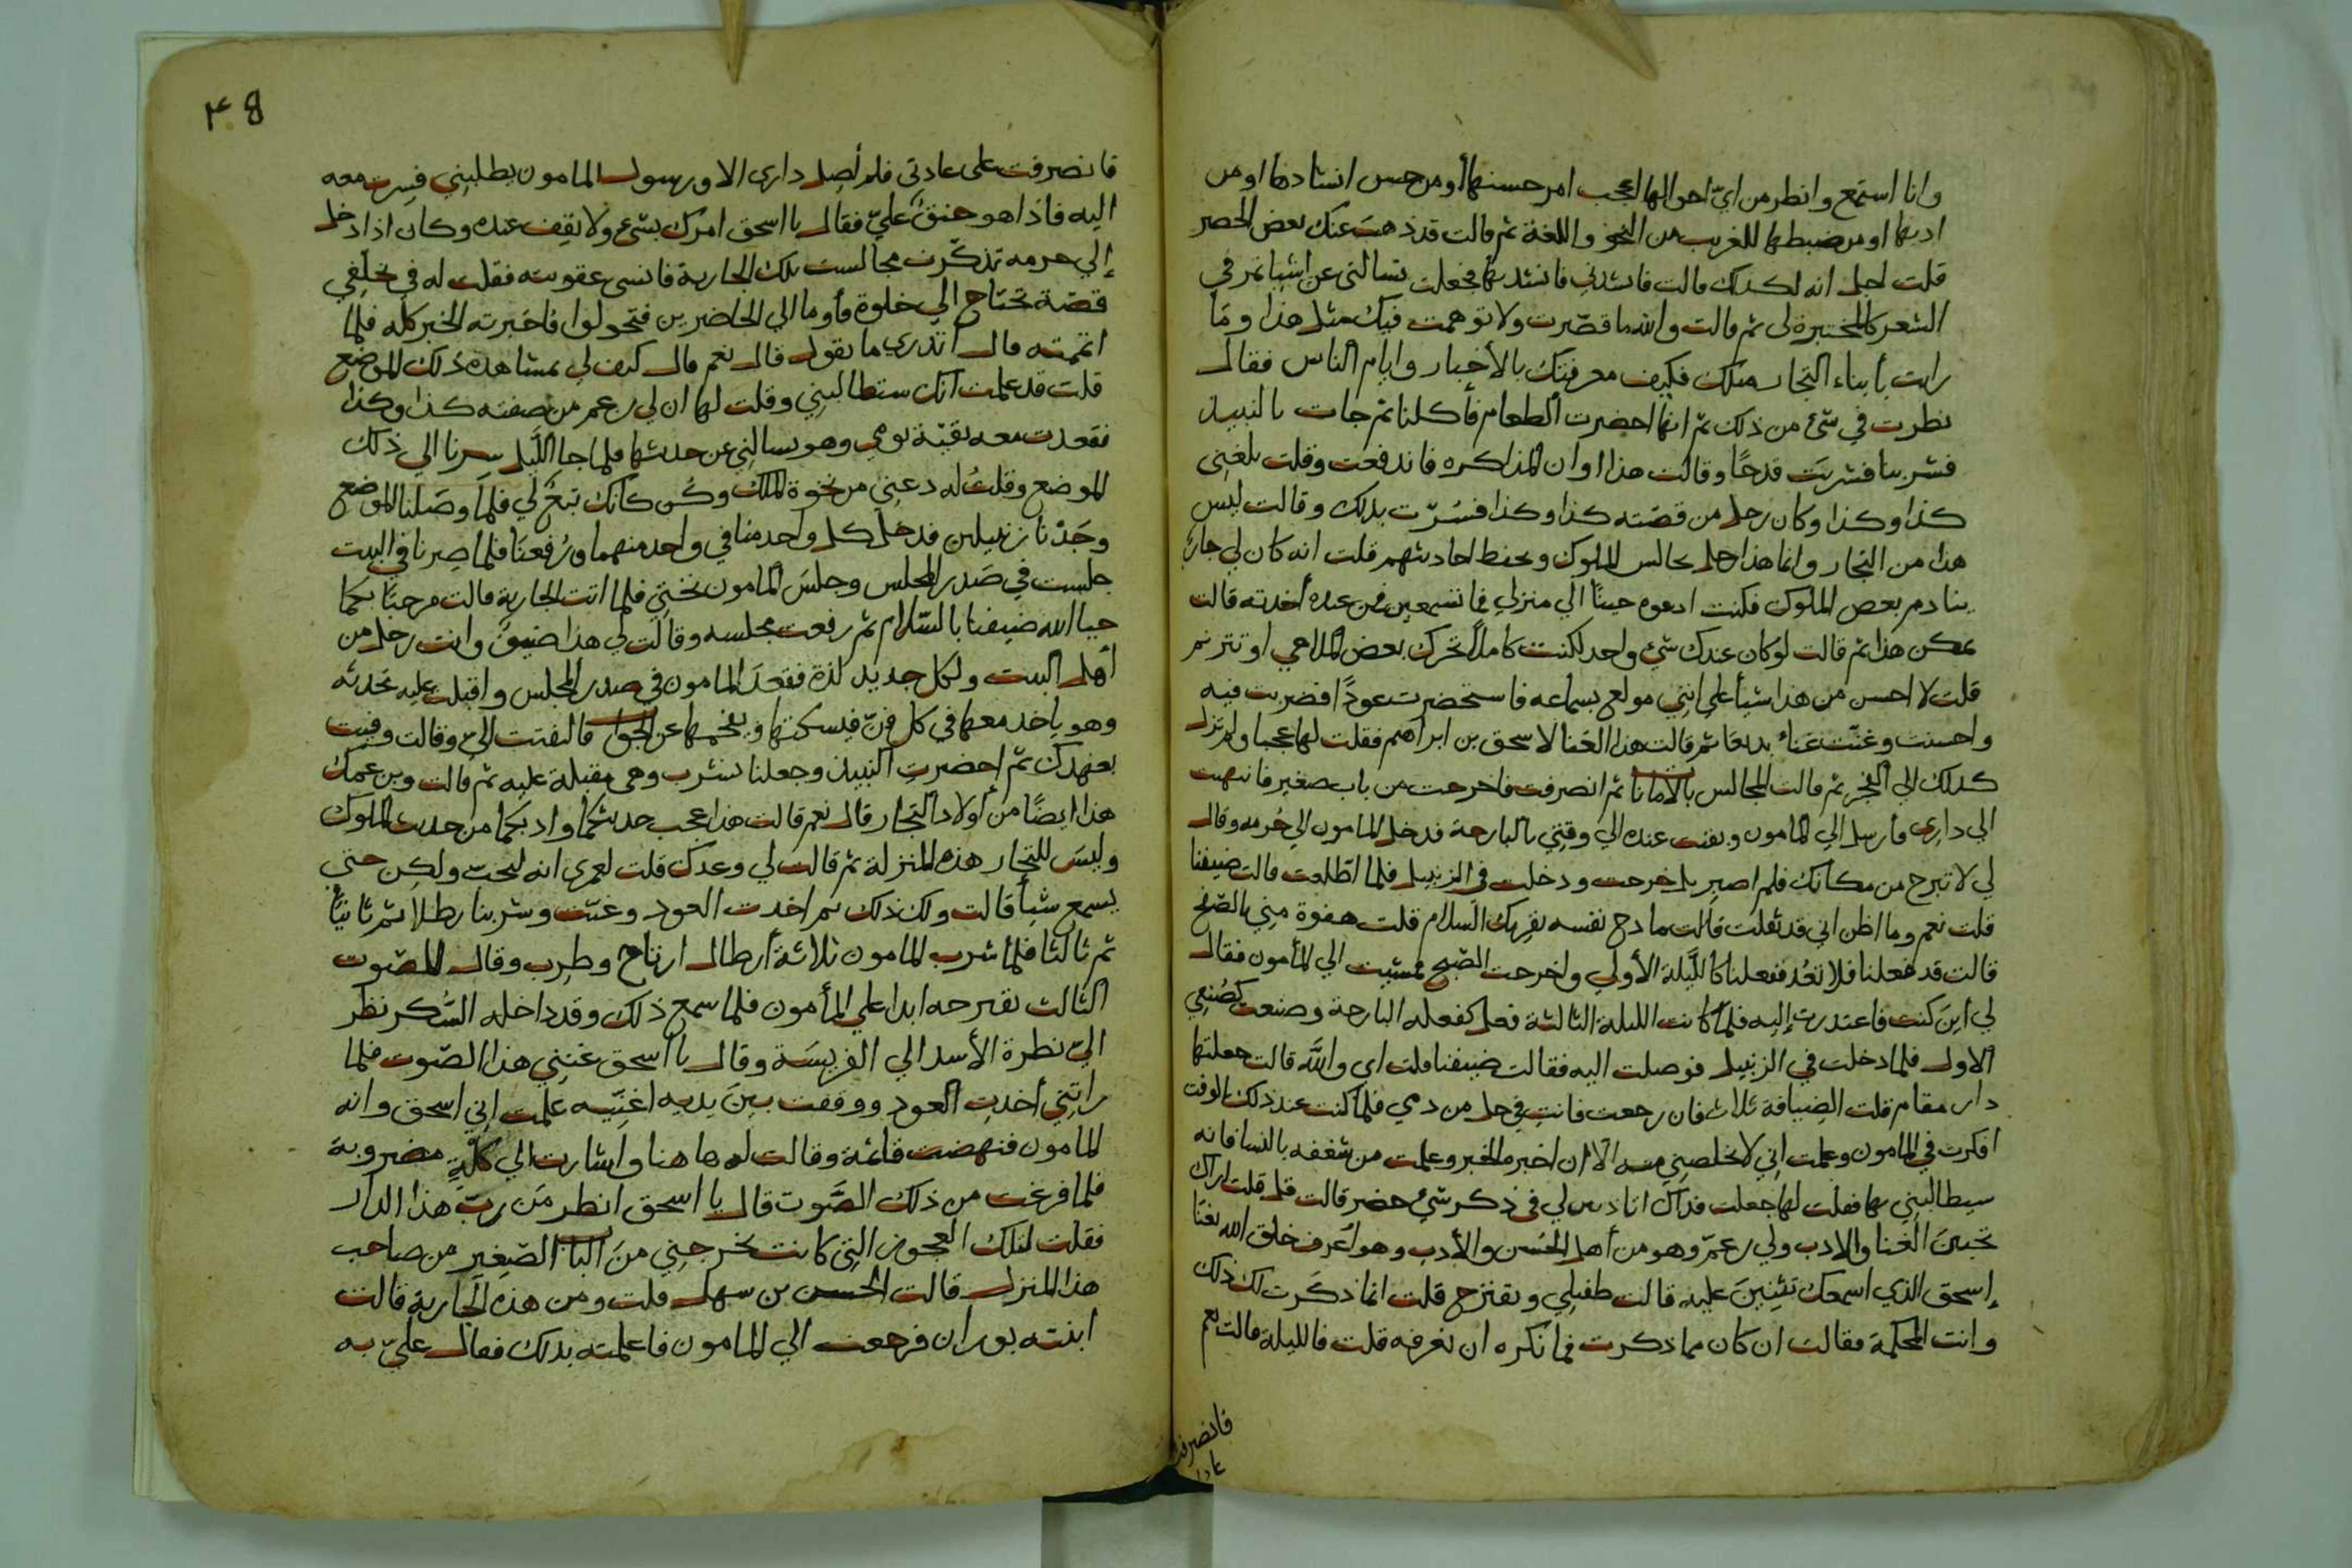 وانا استمع وانظر من ايّ احوالها اعجب امر حسنها أومن حسن انشادها اومن
ادبها اومن ضبطها للغريب من النحو واللغة ثم قالت قد ذهب عنك بعض الحصر
قلت اجل انه لكذلك قالت فانشدني فانشدتها فجعلت تسالني عن اشيا تمر في
الشعر كالمختبرة لي ثم قالت والله ما قصّرت ولا توهمت فيك مثل هذا وما
رايت بأبناء التجار مثلك فكيف معرفتك بالأخبار وايام الناس فقال
نظرت في شئ من ذلك ثم انها احضرت الطعام فأكلنا ثم جات بالنبيذ
فشربنا فشربت قدحًا وقالت هذا اوان المذاكره فاندفعت وقلت بلغني
كذا وكذا وكان رجل من قصّته كذا وكذا فسُرّت بذلك وقالت ليس
هذا من التجار وانما هذا رجل يجالس الملوك ويحفظ احاديثهم قلت انه كان لي جار
ينادم بعض الملوك فكنت ادعوه حينًا الي منزلي فما تسمعين فمن عنده أخذته قالت
يمكن هذا ثم قالت لوكان عندك شئ واحد لكنت كاملاً تحرك بعض الملاهي او تترنم
قلت لا احسن من هذا شيأ علي انني مولع بسماعه فاستحضرت عودًا فضربت فيه
واحسنت وغنّت غناء بديعًا ثم قالت هذا الغنا لاسحق بن ابراهيم فقلت لها عجبا ولم نزل
كذلك الي الفجر ثم قالت المجالس بالامانات ثم انصرفت فاخرجت من باب صغير فانتهيت
الي داري وأرسل الي المامون وبقيت عنده الي وقتي بالبارحة فدخل المامون الي حُرمه وقال
لي لا تبرح من مكانك فلم اصبر بل خرجت ودخلت في الزنبيل فلما اطّلعت قالت ضيفنا
قلت نعم وما اظن اني قد ثقلت قالت مادح نفسه يقريك السلام قلت هفوة مني بالصفح
قالت قد فعلنا فلا تعُد ففعلنا كالليلة الأولي واخرجت الصّبح فمشيت الي المأمون فقال
لي أين كنت فاعتذرت إليه فلما كانت الليلة الثالثة فعل كفعله البارحة وصنعت كصُنعي
الاول فلما دخلت في الزنبيل فوصلت اليه فقالت ضيفنا قلت اي والله قالت جعلتها
دار مقام قلت الضيافة ثلاث فان رجعت فانتِ في حل من دمي فلما كنت عند ذلك الوقت
افكرت في المامون وعلمت اني لا يخلصني منه الا ان اخبره الخبر وعلمت من شغفه بالنسا فانه
سيطالبني بها فقلت لها جعلت فداك اتاذنين لي في ذكر شئ حضر قالت قل قلت اراك
تحبين الغنا والادب ولي بن عمّ وهو من أهل الحُسن والأدب وهو أعرف خلق الله بغنا
إسحق الذي اسمعك تثنين عليه قالت طفيلي ويقترح قلت انما ذكرت لك ذلك
وانت المحكمة فقالت ان كان مما ذكرت فما نكره ان نعرفه قلت فالليلة قالت نعم
فانصرفت
٣٤٨
فانصرفت علي عادتي فلم أصِل داري الا ورسول المامون يطلبني فسِرت معه
اليه فاذا هو حنقٌ عليّ فقال يا اسحق امرك بشئ ولا تقِف عنده وكان اذا دخل
إلي حرمه تذكّرت مجالست تلك الجارية فانسي عقوبته فقلت له في تخلفي
قصّة تحتاج الي خلوة فأوما الي الحاضرين فتحولوا فاخبرته الخبر كله فلما
اتممته قال أتدري ما تقول قال نعم قال كيف لي بمشاهدة ذلك الموضع
قلت قد علمت انك ستطالبني وقلت لها ان لي بن عم من صفته كذا وكذا
فقعدت معه بقيّة يومي وهو يسالني عن حديثها فلما جا الليل سرنا الي ذلك
الموضع وقلتُ له دعني من نخوة الملك وكُن كانك تبعٌ لي فلما وصلنا الموضع
وجدْنا زنبيلين فدخل كل واحد منا في واحد منهما ورُفعنا فلما صرنا في البيت
جلست في صَدر المجلس وجلسَ المامون تحتي فلما اتت الجارية قالت مرحبًا بكما
حيا الله ضيفنا بالسّلام ثم رفعت مجلسه وقالت لي هذا ضيفٌ وانت رجل من
أهل البيت ولكل جديد لذة فقعدَ المامون في صدر المجلس واقبلت عليه تحدثه
وهو ياخذ معها في كل فنّ فيسكتها ويفحمها عن الجواب فالتفتت اليّ وقالت وفيت
بعهدك ثم احضرت النبيذ وجعلنا نشرب وهي مقبلة عليه ثم قالت وبن عمك
هذا ايضًا من أولاد التجار قال نعم قالت هذا عجب حديثكما وادبكما من حديث الملوك
وليسَ للتجار هذه المنزلة ثم قالت لي وعدك قلت لعمري انه ليجب ولكن حتي
يسمع شيأ قالت ولك ذلك ثم اخذت العود وغنّت وشربنا رطلا ثم ثانيًا
ثم ثالثا فلما شرب المامون ثلاثة أرطال ارتاح وطرِب وقال للصّوت
الثالث تقترحه ابدا علي المأمون فلما سمع ذلك وقد داخله السُّكر نظر
اليّ نظرة الأسد الي الفريسَة وقال يا اسحق غنني هذا الصّوت فلما
راتني أخذت العود ووقفت بين يديه اغنّيه علمت اني اسحق وانه
المامون فنهضت قائمة وقالت له ها هنا واشارت الي كلّة مضروبة
فلما فرغت من ذلك الصّوت قال يا اسحق انظر مَن ربّ هذا الدار
فقلت لتلك العجوز التي كانت تخرجني منَ الباب الصّغير من صاحب
هذا المنزل قالت الحسن بن سهل قلت ومن هذه الجارية قالت
ابنته بوران فرجعت الي المامون فاعلمته بذلك فقال عليّ به